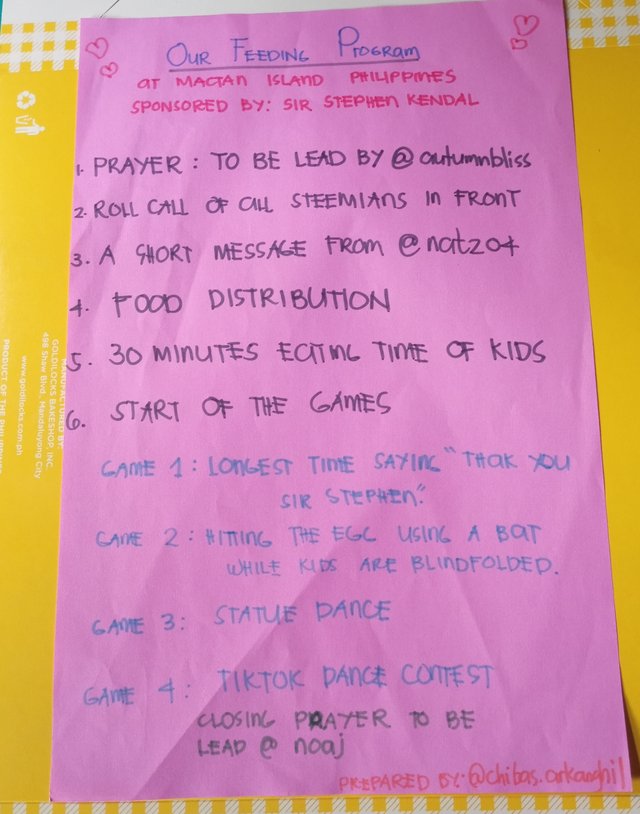 OUR FEEDING PROGRAM
AT MACTAN ISLAND PHILIPPINES
SPONSORED BY: SIR STEPHEN KENDAL
1. PRAYER : TO BE LEAD BY @autumnbliss
2. ROLL CALL OF ALL STEEMIANS IN FRONT
3. A SHORT MESSAGE FROM @natz04
4. FOOD DISTRIBUTION
5. 30 MINUTES EATING TIME OF KIDS
6. START OF THE GAMES
GAME 1 : LONGEST TIME SAYING "THAK YOU
SIR STEPHEN".
GAME 2 : HITTING THE EGG USING A BAT
WHILE KIDS ARE BLINDFOLDED.
GAME 3 : STATUE DANCE
GAME 4 : TIKTOK DANCE CONTEST
CLOSING PRAYER TO BE
LEAD @ noaj
PREPARED BY: @chibas.arkanghil
MANUFACTURED BY:
GOLDILOCKS BAKESHOP, INC.
498 Shaw Blvd., Mandaluyong City
www.goldilocks.com.ph
PRODUCT OF THE PHILIPPINES